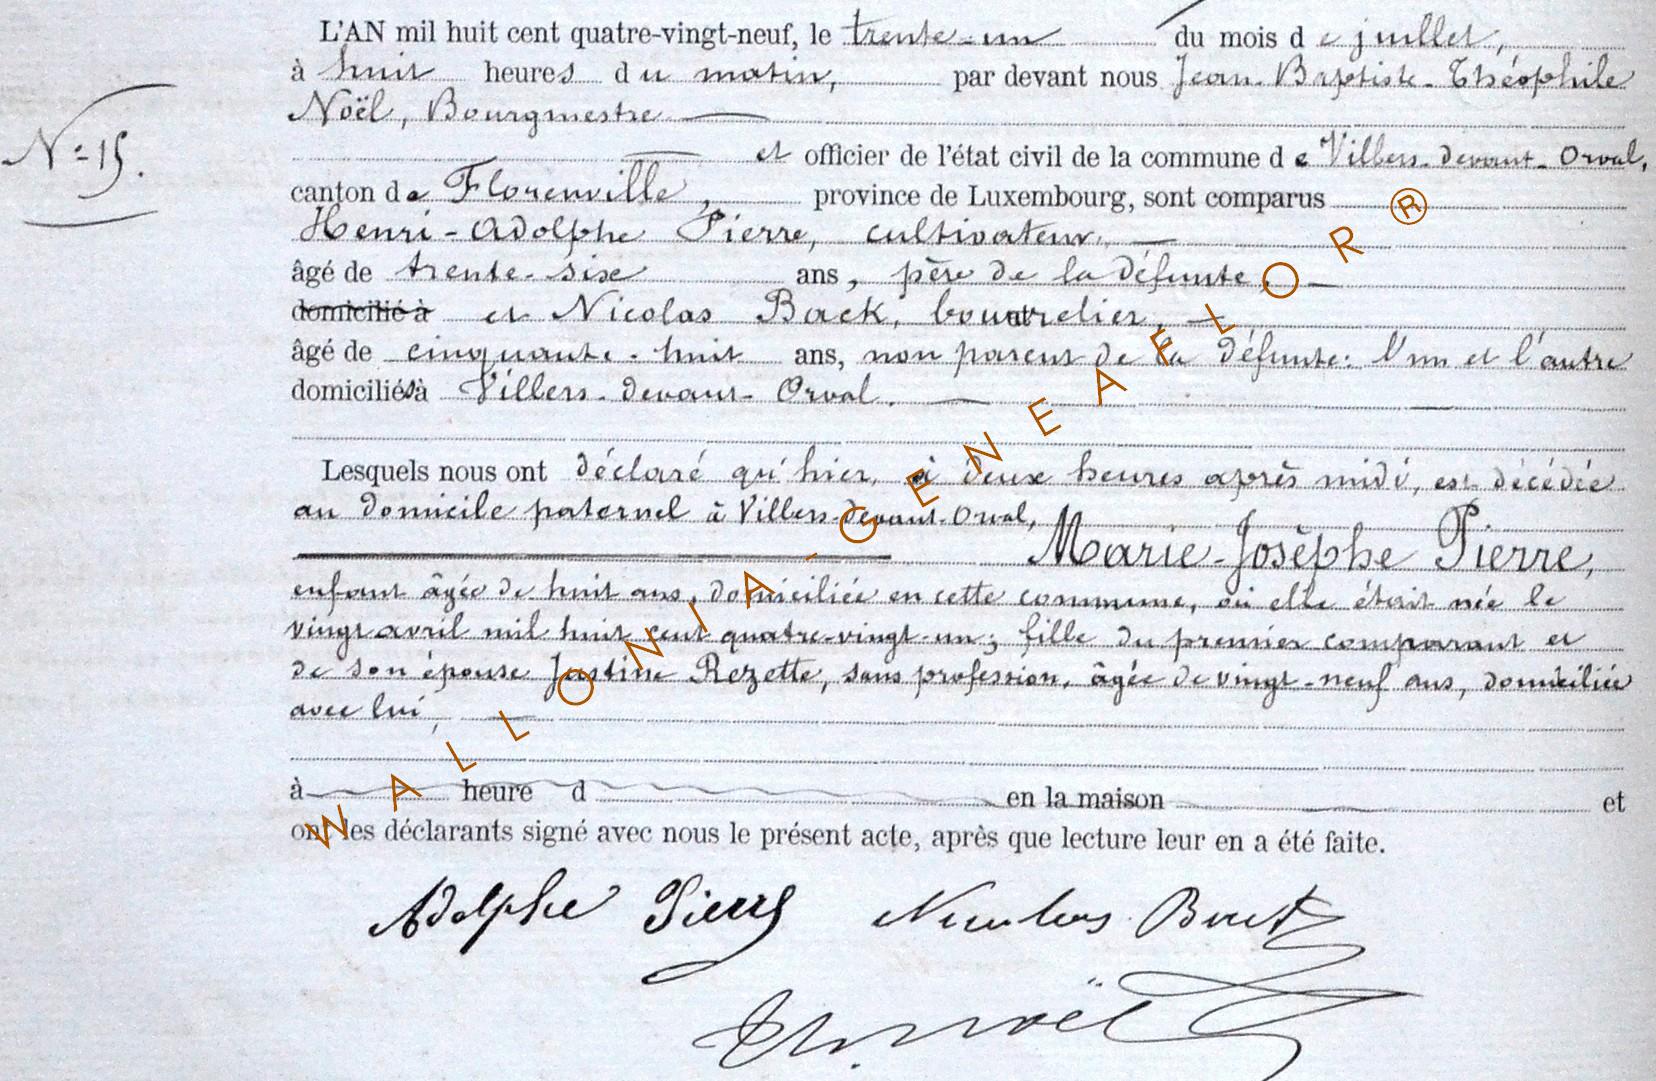 L'AN mil huit cent quatre-vingt-neuf, le trente-un du mois de juillet,
à huit heures du matin, par devant nous Jean-Baptiste-Théophile
Noël, Bourgmestre
N° 15.
et officier de l'état civil de la commune de Villers-devant-Orval,
canton de Florenville, province de Luxembourg, sont comparus
Henri-Adolphe Pierre, cultivateur,
âgé de trente-six ans, père de la défunte,
domicilié à et Nicolas Back, bourrelier,
âgé de cinquante-huit ans, non parent de la défunte: l'un et l'autre
domiciliés à Villers-devant-Orval.
Lesquels nous ont déclaré qu'hier, à deux heures après midi, est décédée
au domicile paternel à Villers-devant-Orval,
Marie-Josèphe Pierre,
enfant âgée de huit ans, domiciliée en cette commune, où elle était née le
vingt avril mil huit cent quatre-vingt-un; fille du premier comparant et
de son épouse Justine Rezette, sans profession, âgée de vingt-neuf ans, domiciliée
avec lui,
à heure d en la maison et
ont les déclarants signé avec nous le présent acte, après que lecture leur en a été faite.
Adolphe Pierre Nicolas Back
Th. Noël
WALLONIA-GENEAFLOR ®